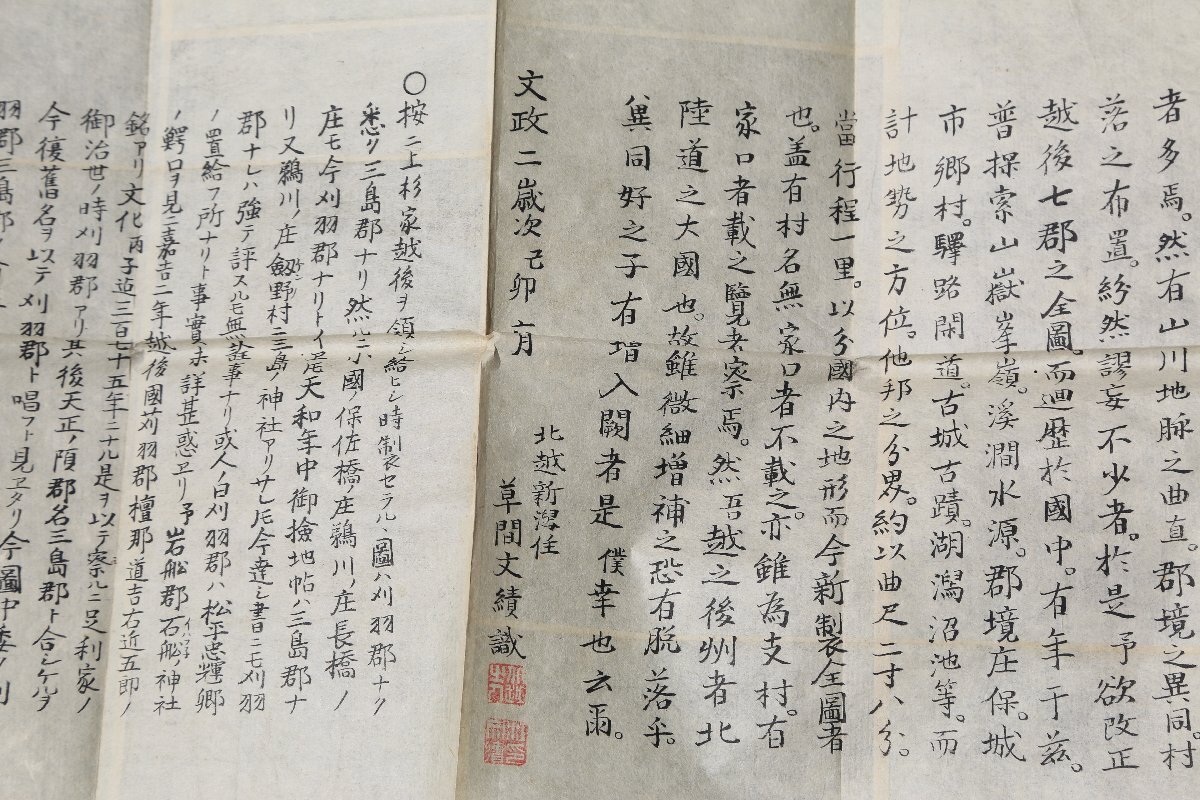 者多焉。然有山川地脉之曲直。郡境之異同。村
落之布置。紛然謬妄不少者。於是予欲改正
越後七郡之全圖。而廻歴於國中。有年于茲。
普探索山嶽峯嶺。溪澗水源。郡境庄保。城
市郷村。驛路閑道。古城古蹟。湖潟沼池等。而
計地勢之方位。他邦之分界。約以曲尺二寸八分。
當行程一里。以分國内之地形而今新製全圖者
也。盖有村名無家口者不載之。亦雖為支村。有
家口者載之覽者察焉。然吾越之後州者北
陸道之大國也。故雖微細增補之恐有脱落乎。
冀同好之子有指入闕者是僕幸也云爾。
文政二歳次己卯六月
北越新潟住
草間文績識
○按二上杉家越後ヲ領シ給ヒシ時製セラルハ圖ハ刈羽郡ナク
悉ク三島郡ナリ然ルニ小國ノ保佐橋ノ庄鵜川ノ庄長橋ノ
庄モ今刈羽郡ナリトイヘ𪜈天和年中御撿地帖ハ三島郡ナ
リ又鵜川ノ庄劔野村三島ノ神社アリサレ𪜈今達シ書ニモ刈羽
郡ナレハ強テ評スルモ無益事ナリ或人ノ曰刈羽郡ハ松平忠輝卿
ノ置給フ所ナリト事實未詳甚惑ヱリ予岩船郡石船ノ神社
ノ鰐口ヲ見ニ嘉吉二年越後國苅羽郡檀那道吉右近五郎ノ
銘アリ文化丙子迠三百七十五年ニナル是ヲ以テ察ルニ足利家ノ
御治世ノ時刈羽郡アリ其後天正ノ頃郡名三島郡ト合シケルヲ
今復舊名ヲ以テ刈羽郡ト唱フト見ヱタリ今圖中
羽郡三島郡ノ